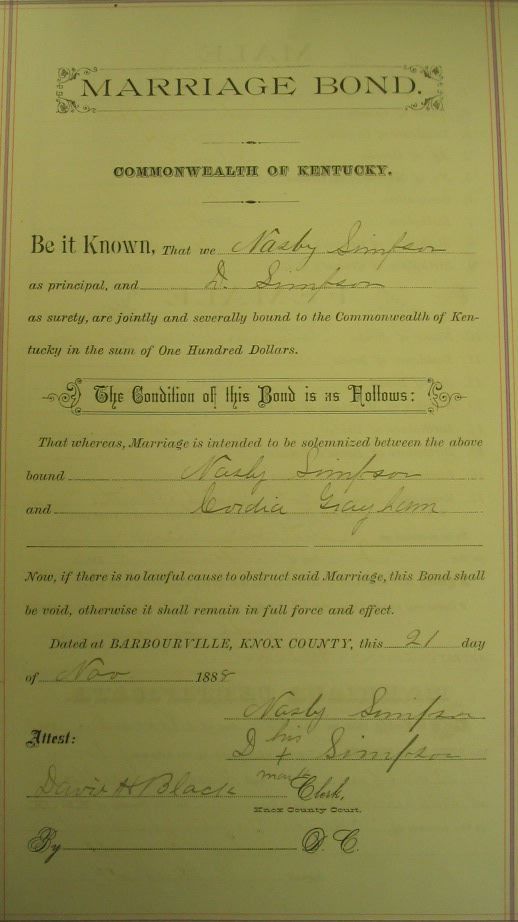 MARRIAGE BOND.
COMMONWEALTH OF KENTUCKY.
Be it Known, That we Nasby Simpson
as principal, and D. Simpson
as surety, are jointly and severally bound to the Commonwealth of Ken-
tucky in the sum of One Hundred Dollars.
The Condition of this Bond is as Follows:
That whereas, Marriage is intended to be solemnized between the above
bound Nasby Simpson
and Cordia Grayham
Now, if there is no lawful cause to obstruct said Marriage, this Bond shall
be void, otherwise it shall remain in full force and effect.
Dated at BARBOURVILLE, KNOX COUNTY, this 21 day
of Nov 1888
Nasby Simpson
Attest:
his
D + Simpson
mark
David H Black Clerk,
Knox County Court.
By D. C.